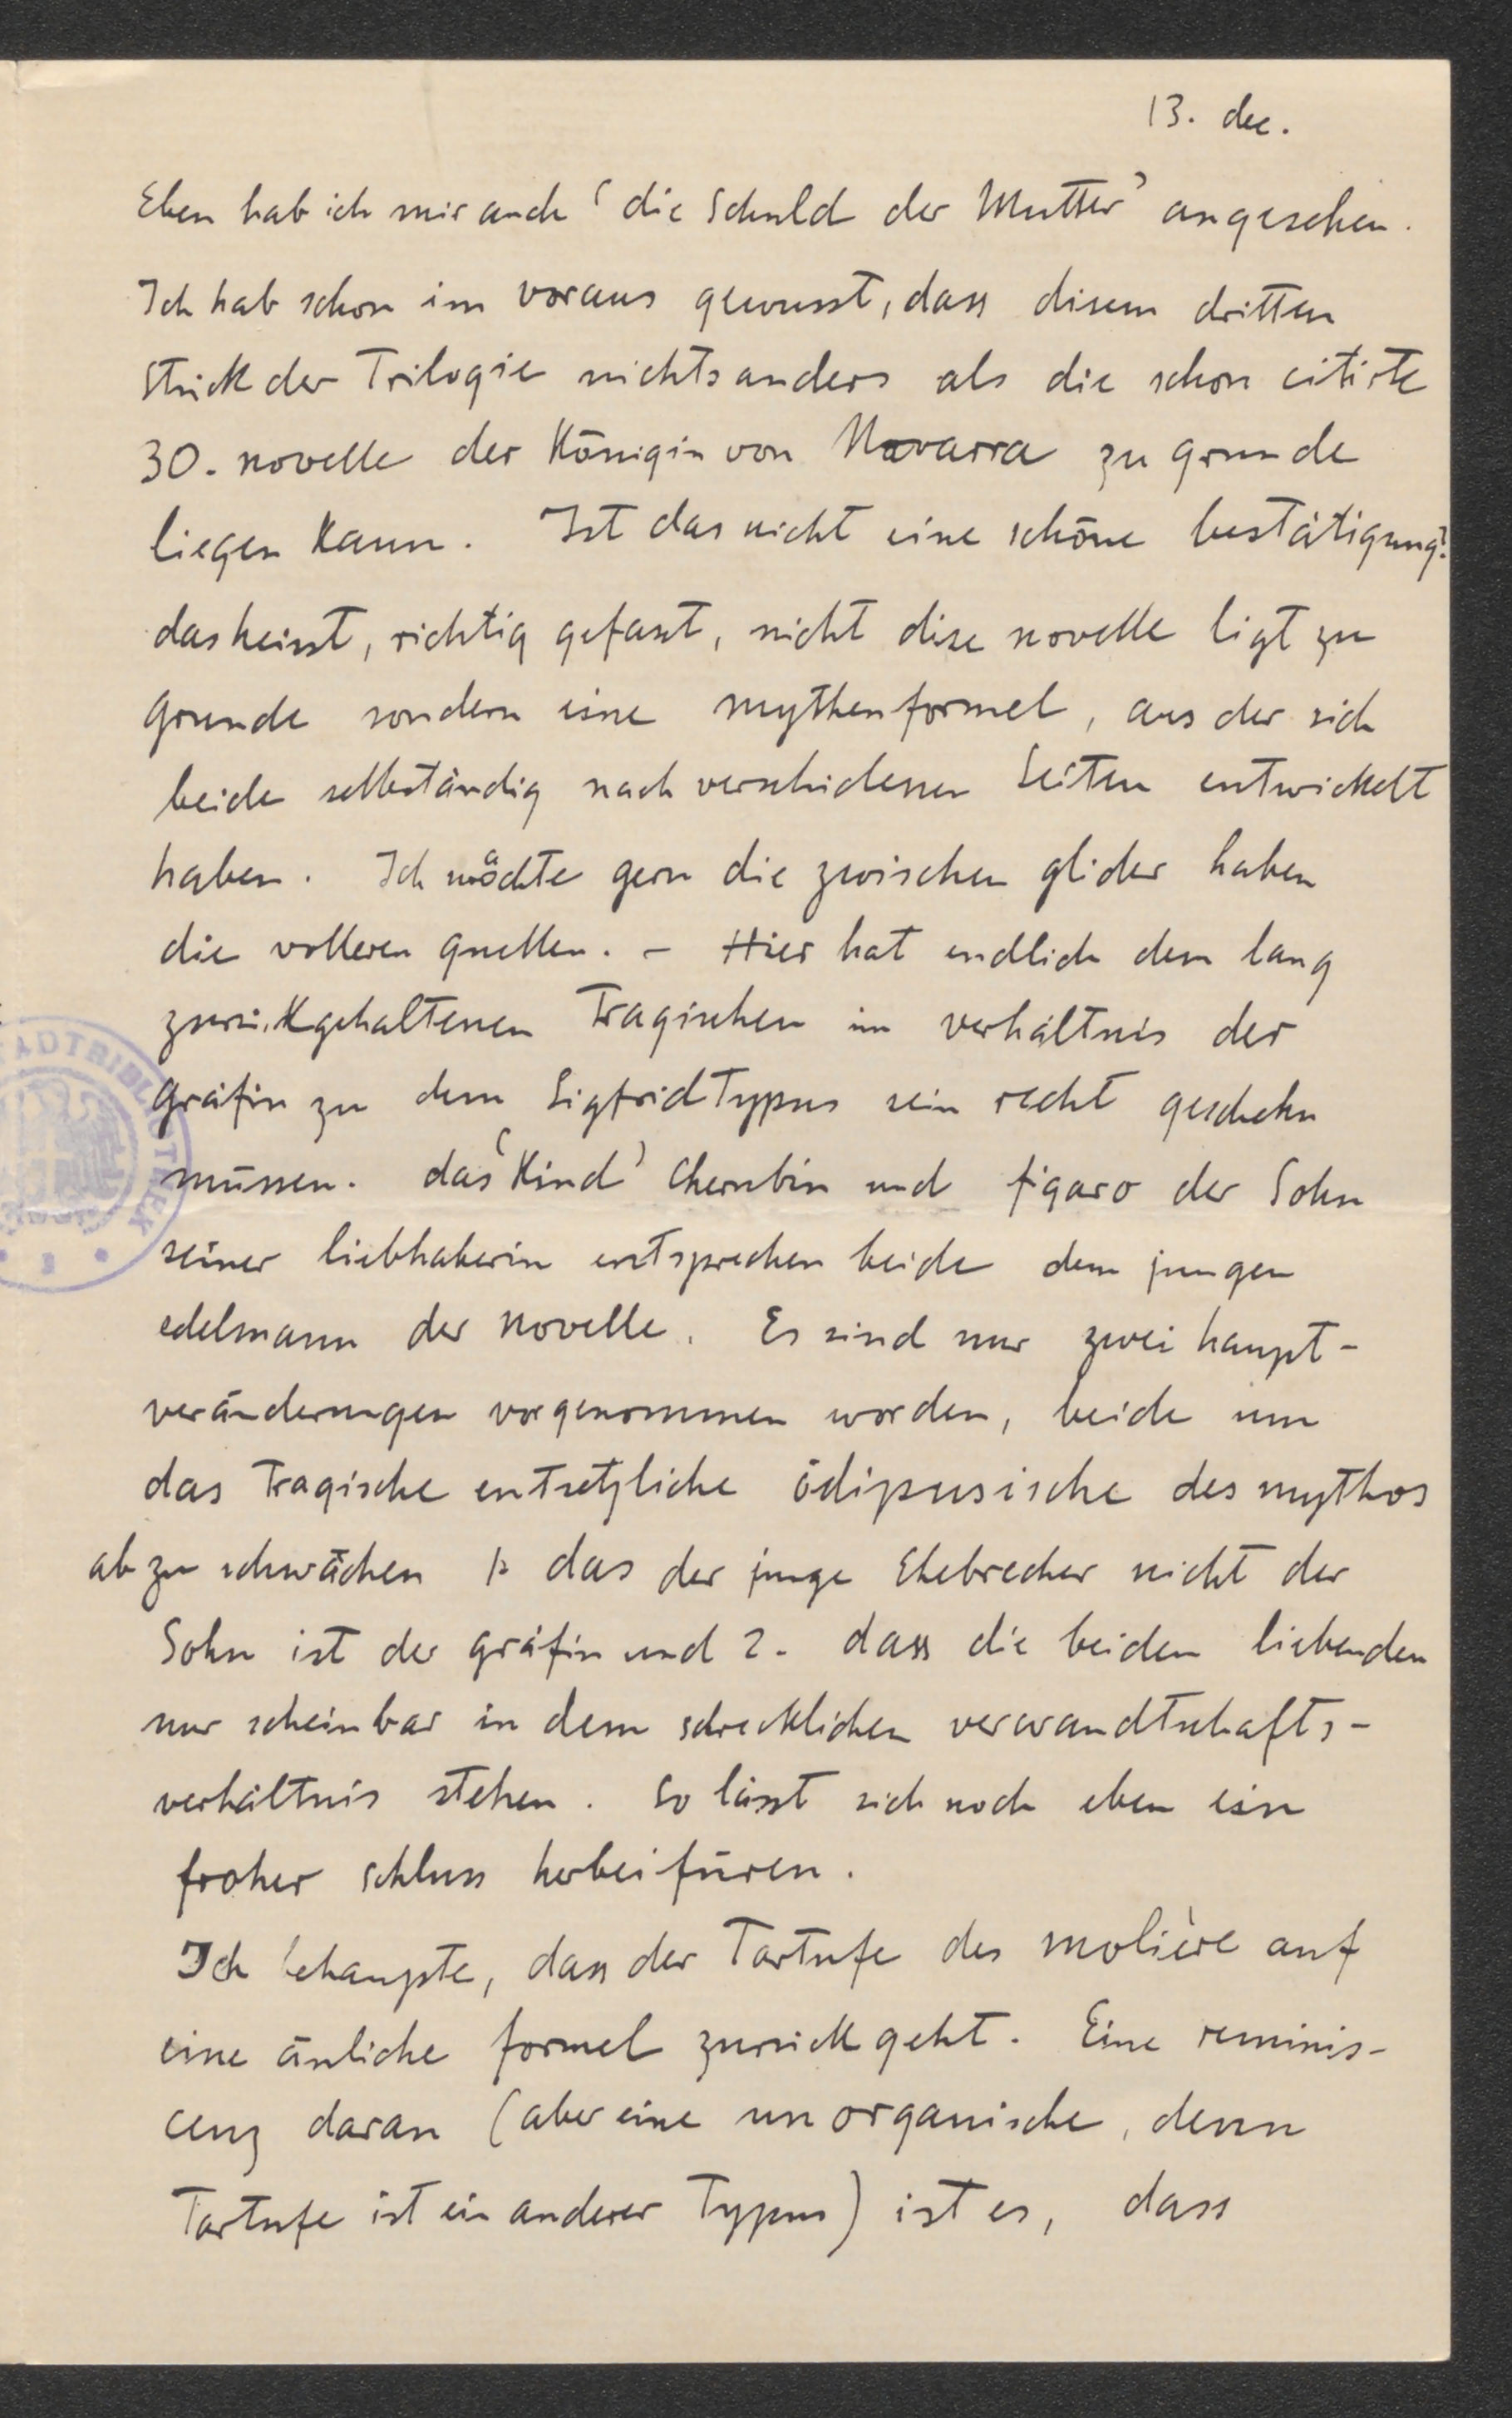 13. dec.
Eben hab ich mir auch 'die Schuld der Mutter' angesehen.
Ich hab schon im voraus gewusst, dass disem dritten
Stück der Trilogie nichts anders als die schon citirte
30. novelle der Königin von Navarra zu grunde
liegen kann. Ist das nicht eine schöne bestätigung?
das heisst, richtig gefasst, nicht dise novelle ligt zu
grunde sondern eine mythenformel, aus der sich
beide selbständig nach verschidenen Seiten entwickelt
haben. Ich möchte gern die zwischen glider haben
die volleren quellen. – Hier hat endlich dem lang
zurückgehaltenen Tragischen im verhältnis der
gräfin zu dem Sigfrid Typus sein recht geschehn
müssen. das 'Kind' Cherubin und figaro der Sohn
seiner liebhaberin entsprechen beide dem jungen
edelmann der novelle. Es sind nur zwei haupt-
veränderungen vorgenommen worden, beide um
das Tragische entsetzliche ödipusische des mythos
ab zu schwächen 1. das der junge Ehebrecher nicht der
Sohn ist der gräfin und 2. dass die beiden liebenden
nur scheinbar in dem schrecklichen verwandtschafts-
verhältnis stehen. So lässt sich noch eben ein
froher schluss herbeifüren.
Ich behaupte, dass der Tartufe des molière auf
eine änliche formel zurückgeht. Eine reminis-
cenz daran (aber eine unorganische, denn
Tartufe ist ein anderer Typus) ist es, dass
STADTBIBLIOTHEK